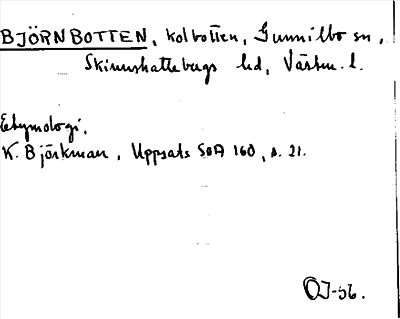 BJÖRNBOTTEN, Kolbotten, Gunnilbo sn,
Skinnskattebergs hd, Västm. l.
Etymologi.
K. Björkman, Uppsats SOA 160, s. 21.
OJ-56.